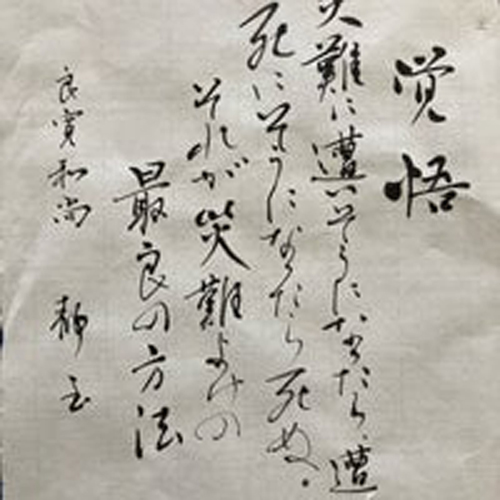 覚悟
災難に遭いそうになったら、遭
死にそうになったら死ぬ。
それが災難よけの
最良の方法
良寛和尚 静玉